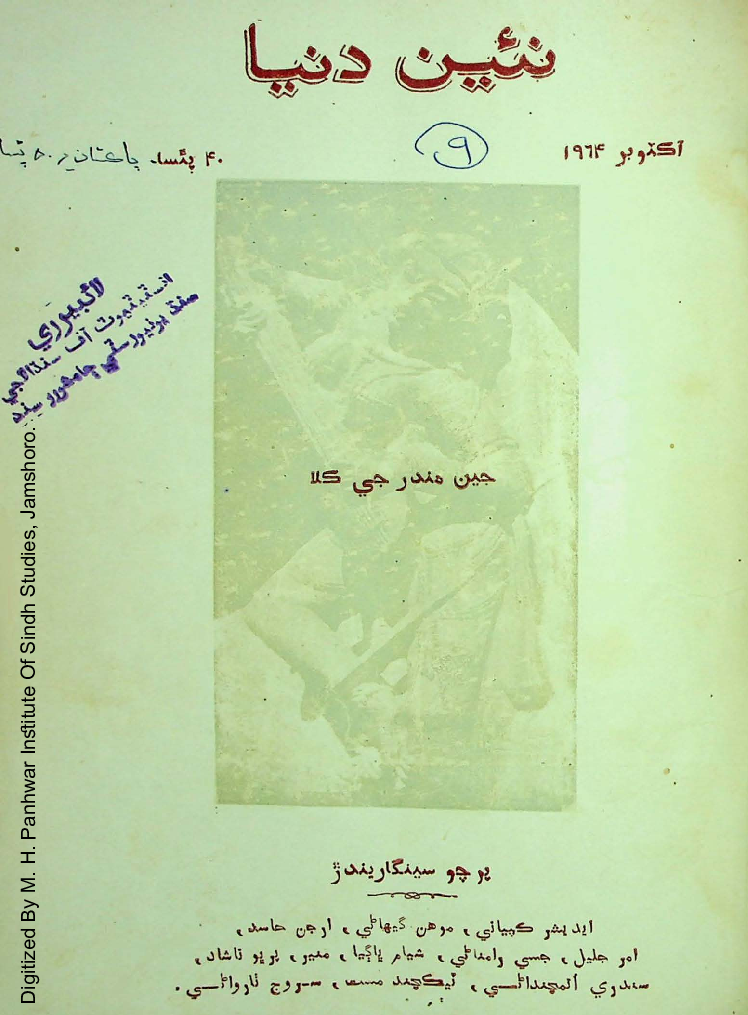 نئين دنيا
آڪٽوبر ١٩٦۴
۹
۴۰ پئسا.
لائبريري
انسٽيٽيوٽ آف سنڌالاجي
سنڌ يونيورسٽي ڄامشورو سنڌ
جين مندر جي ڪلا
پرچو سينگاريندڙ
ايشور ڪيپاڻي، موهن گيهاڻي، ارجن حاسد،
امر جليل، جسي رامناڻي، شيام پاڳيا، منير، پريو ناشاد،
سندري اتمچنداڻي، ٽيڪچند مست، سروج نارواڻي.
Digitized By M. H. Panhwar Institute Of Sindh Studies, Jamshoro.